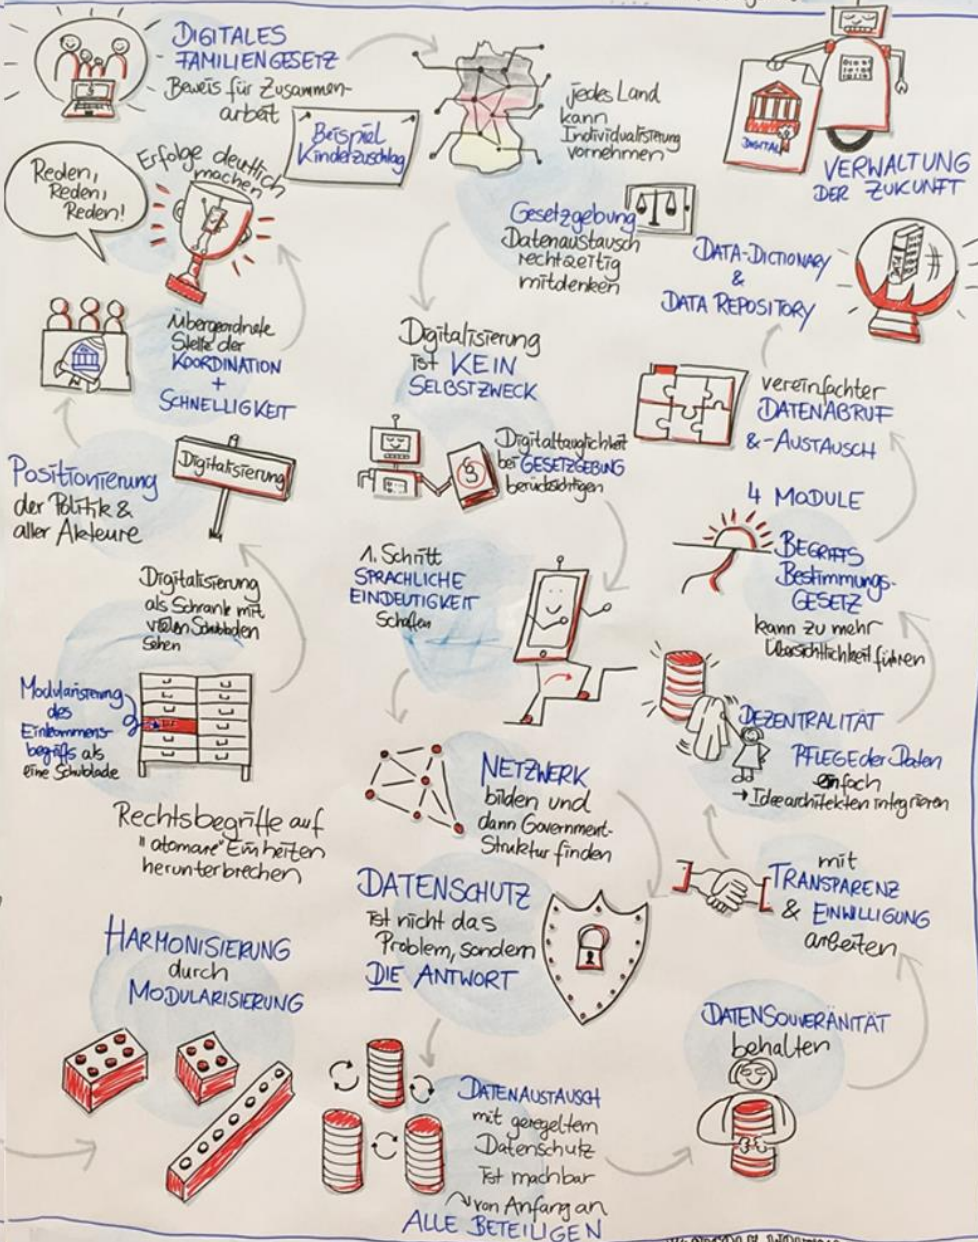 DIGITALES
FAMILIENGESETZ
Beweis für Zusammen-
arbeit
Beispiel
Kinderzuschlag
jedes Land
kann
Individualisierung
vornehmen
DIGITAL
VERWALTUNG
DER ZUKUNFT
Reden,
Reden,
Reden!
Erfolge deutlich
machen
Gesetzgebung
Datenaustausch
rechtzeitig
mitdenken
DATA-DICTIONARY
&
DATA REPOSITORY
Übergeordnete
Stelle der
KOORDINATION
+
SCHNELLIGKEIT
Digitalisierung
ist KEIN
SELBSTZWECK
vereinfachter
DATENABRUF
& -AUSTAUSCH
Positionierung
der Politik &
aller Akteure
Digitalisierung
§
Digitaltauglichkeit
bei GESETZGEBUNG
berücksichtigen
4 MODULE
BEGRIFFS
Bestimmungs-
GESETZ
kann zu mehr
Übersichtlichkeit führen
Digitalisierung
als Schrank mit
vielen Schubladen
sehen
1. Schritt
SPRACHLICHE
EINDEUTIGKEIT
schaffen
Modularisierung
des
Einkommens-
begriffs als
eine Schublade
DEZENTRALITÄT
PFLEGE der Daten
einfach
→ Ideearchitekten integrieren
Rechtsbegriffe auf
"atomare" Einheiten
herunterbrechen
NETZWERK
bilden und
dann Government-
Struktur finden
mit
TRANSPARENZ
& EINWILLIGUNG
arbeiten
DATENSCHUTZ
ist nicht das
Problem, sondern
DIE ANTWORT
HARMONISIERUNG
durch
MODULARISIERUNG
DATENSOUVERÄNITÄT
behalten
DATENAUSTAUSCH
mit geregeltem
Datenschutz
ist machbar
von Anfang an
ALLE BETEILIGEN